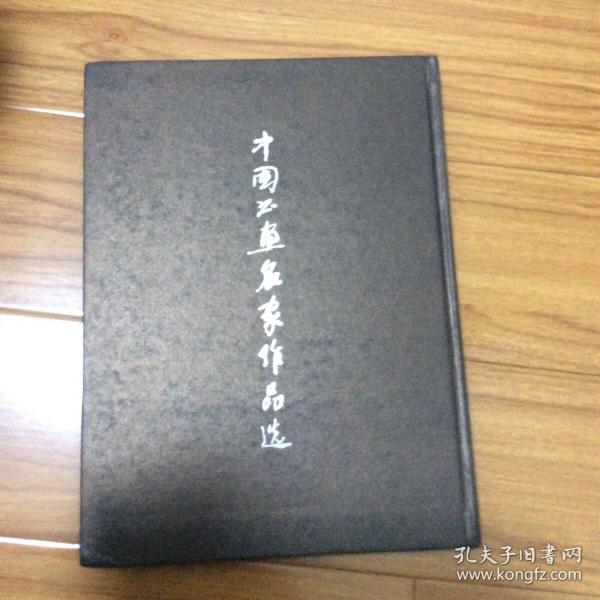 中国书画名家作品选
孔夫子旧書网
www.kongfz.com